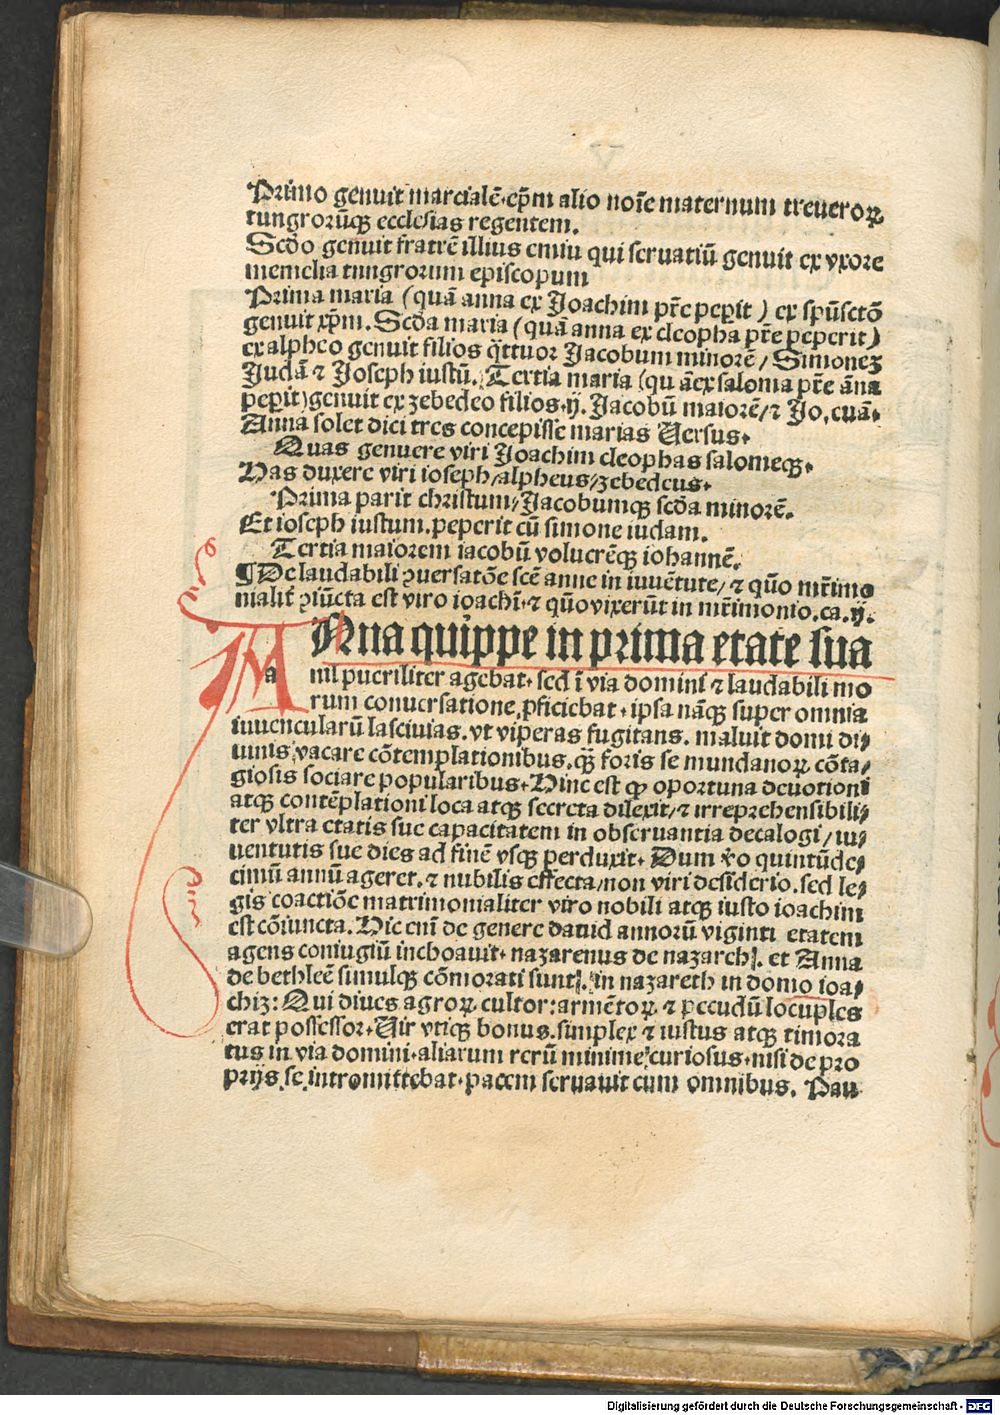 Primo genuit marcialē·ep̄m alio noīe maternum treueroꝝ
tungrorūqꝫ ecclesias regentem.
Scd̄o genuit fratrē illius emiu qui seruatiū genuit ex vxore
memelia tungrorum episcopum
Prima maria (quā anna ex Joachim pr̄e peꝑit) ex spūsctō
genuit xp̄m. Scd̄a maria (quā anna ex cleopha pr̄e peperit)
ex alpheo genuit filios q̄ttuor Jacobum minorē/ Simonez
Judā ⁊ Joseph iustū. Tertia maria (qu āex saloma pr̄e āna
peꝑit) genuit ex zebedeo filios·ij. Jacobū maiorē/⁊ Jo, euā·
Anna solet dici tres concepisse marias Versus·
Quas genuere viri Joachim cleophas salomeqꝫ·
Has duxere viri ioseph/alpheus/zebedeus·
Prima parit christum/Jacobumqꝫ scd̄a minorē.
Et ioseph iustum.peperit cū simone iudam.
Tertia maiorem iacobū volucrēqꝫ iohannē.
¶ De laudabili ꝯuersatōe scē anne in iuuētute/ ⁊ quō mr̄imo
nialit̄ ꝯiūcta est viro ioachī·⁊ quōvixerūt in mr̄imonio.ca.ij.
ANna quippe in prima etate sua
nil pueriliter agebat· sed ī via domini ⁊ laudabili mo
rum conuersatione ꝓficiebat · ipsa nāqꝫ super omnia
iuuencularū lasciuias. vt viperas fugitans. maluit domi di⸗
uinis vacare cōtemplationibus. qꝫ̄ foris se mundanoꝝ cōta⸗
giosis sociare popularibus· Hinc est ꝙ oportuna deuotioni
atqꝫ contēplationi loca atqꝫ secreta dilexit/⁊ irreprehensibili⸗
ter vltra etatis sue capacitatem in obseruantia decalogi/ iu⸗
uentutis sue dies ad finē vsqꝫ perduxit. Dum v̄o quintūde⸗
cimū annū ageret. ⁊ nubilis effecta/non viri desiderio. sed le⸗
gis coactiōe matrimonialiter viro nobili atqꝫ iusto ioachim
est cōiuncta. Hic enī de genere dauid annorū viginti etatem
agens coniugiū inchoauit· nazarenus de nazareth. et Anna
de bethleē simulqꝫ cōmorati sunt. in nazareth in domo ioa⸗
chiz: Qui diues agroꝝ cultor: armētoꝝ ⁊ pecudū locuples
erat possessor· Vir vtiqꝫ bonus. simplex ⁊ iustus atqꝫ timora
tus in via domini·aliarum rerū minime curiosus· nisi de pro
prijs se intromittebat· pacem seruauit cum omnibus. Pau
Digitalisierung gefördert durch die Deutsche Forschungsgemeinschaft - DFG